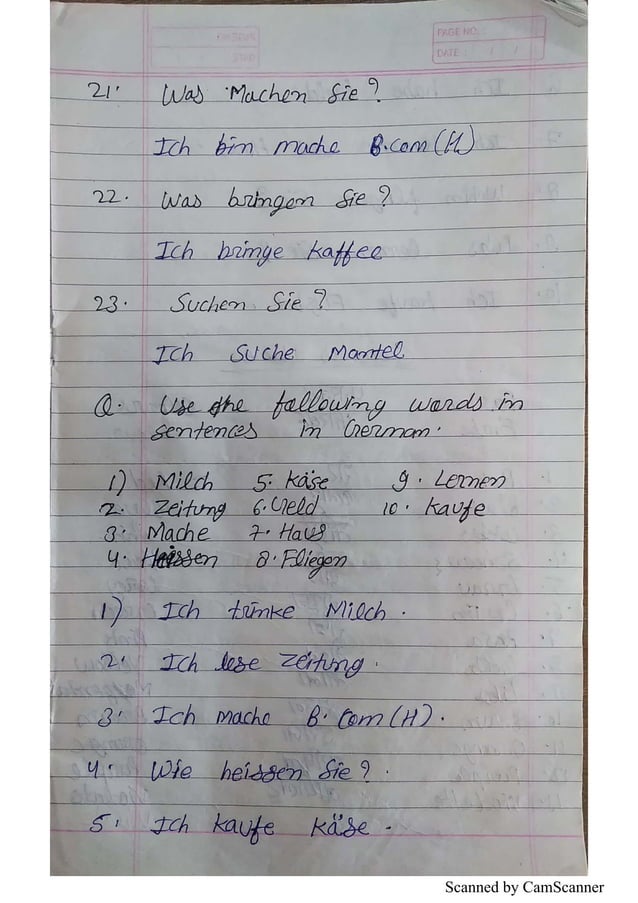 PAGE NO.:
DATE: / /
21. Was Machen Sie?
Ich bin mache B.com (H)
22. Was bringen Sie?
Ich bringe kaffee
23. Suchen Sie?
Ich suche Mantel
Q. Use the following words in
sentences in German.
1) Milch 5. Käse 9. Lernen
2. Zeitung 6. Geld 10. Kaufe
3. Mache 7. Haus
4. Heissen 8. Fliegen
1) Ich trinke Milch.
2. Ich lese Zeitung.
3. Ich mache B.Com (H).
4. Wie heissen Sie?
5. Ich kaufe Käse.
Scanned by CamScanner